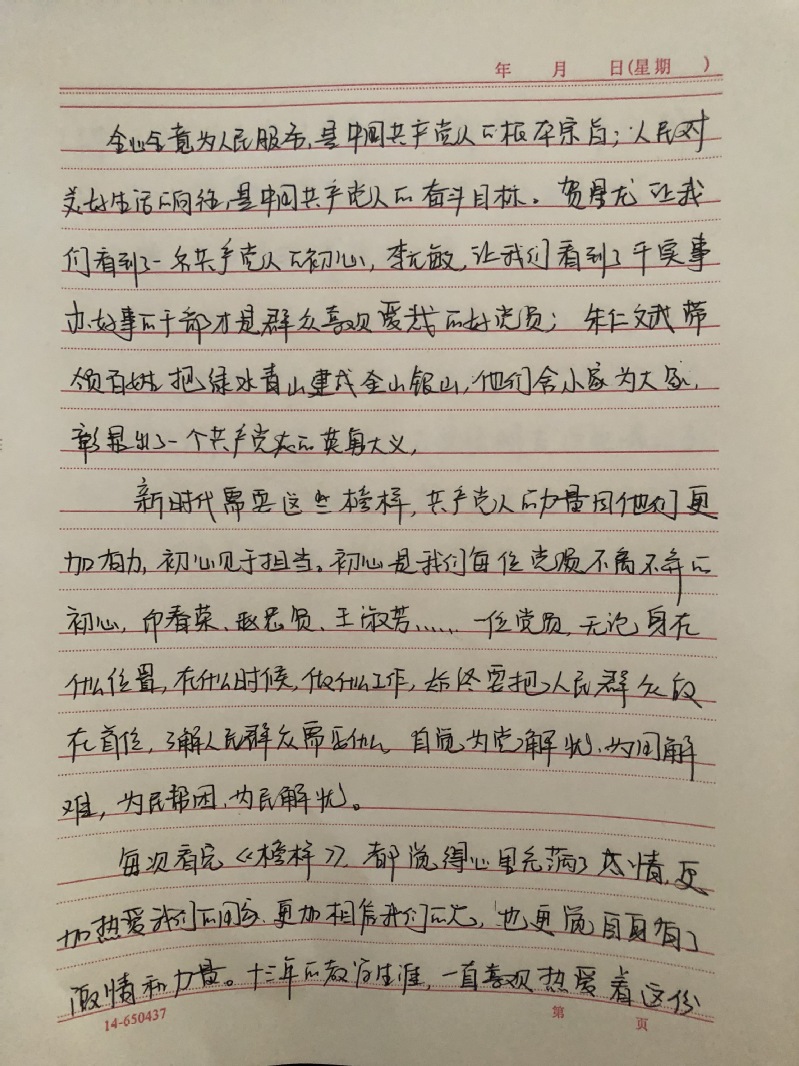 年 月 日(星期 )
全心全意为人民服务,是中国共产党人的根本宗旨;人民对
美好生活的向往,是中国共产党人的奋斗目标。贺星龙让我
们看到了一名共产党人的初心,李元敏,让我们看到了干实事
办好事的干部才是群众喜欢爱戴的好党员;朱仁文斌带
领百姓把绿水青山建成金山银山,他们舍小家为大家,
彰显出了一个共产党人的英勇大义,
新时代需要这些榜样,共产党人的力量因他们更
加有力,初心见于担当。初心是我们每位党员不离不弃的
初心,印春荣、赵忠贤、王淑芳……一位党员,无论身在
什么位置,在什么时候,做什么工作,始终要把人民群众放
在首位,了解人民群众需要什么。自觉为党解忧、为国解
难,为民帮困、为民解忧。
每次看完《榜样》,都觉得心里充满了感情,更
加热爱我们的国家、更加相信我们的党,也更觉自身有了
激情和力量。十三年的教育生涯,一直喜欢热爱着这份
14-650437 第 页